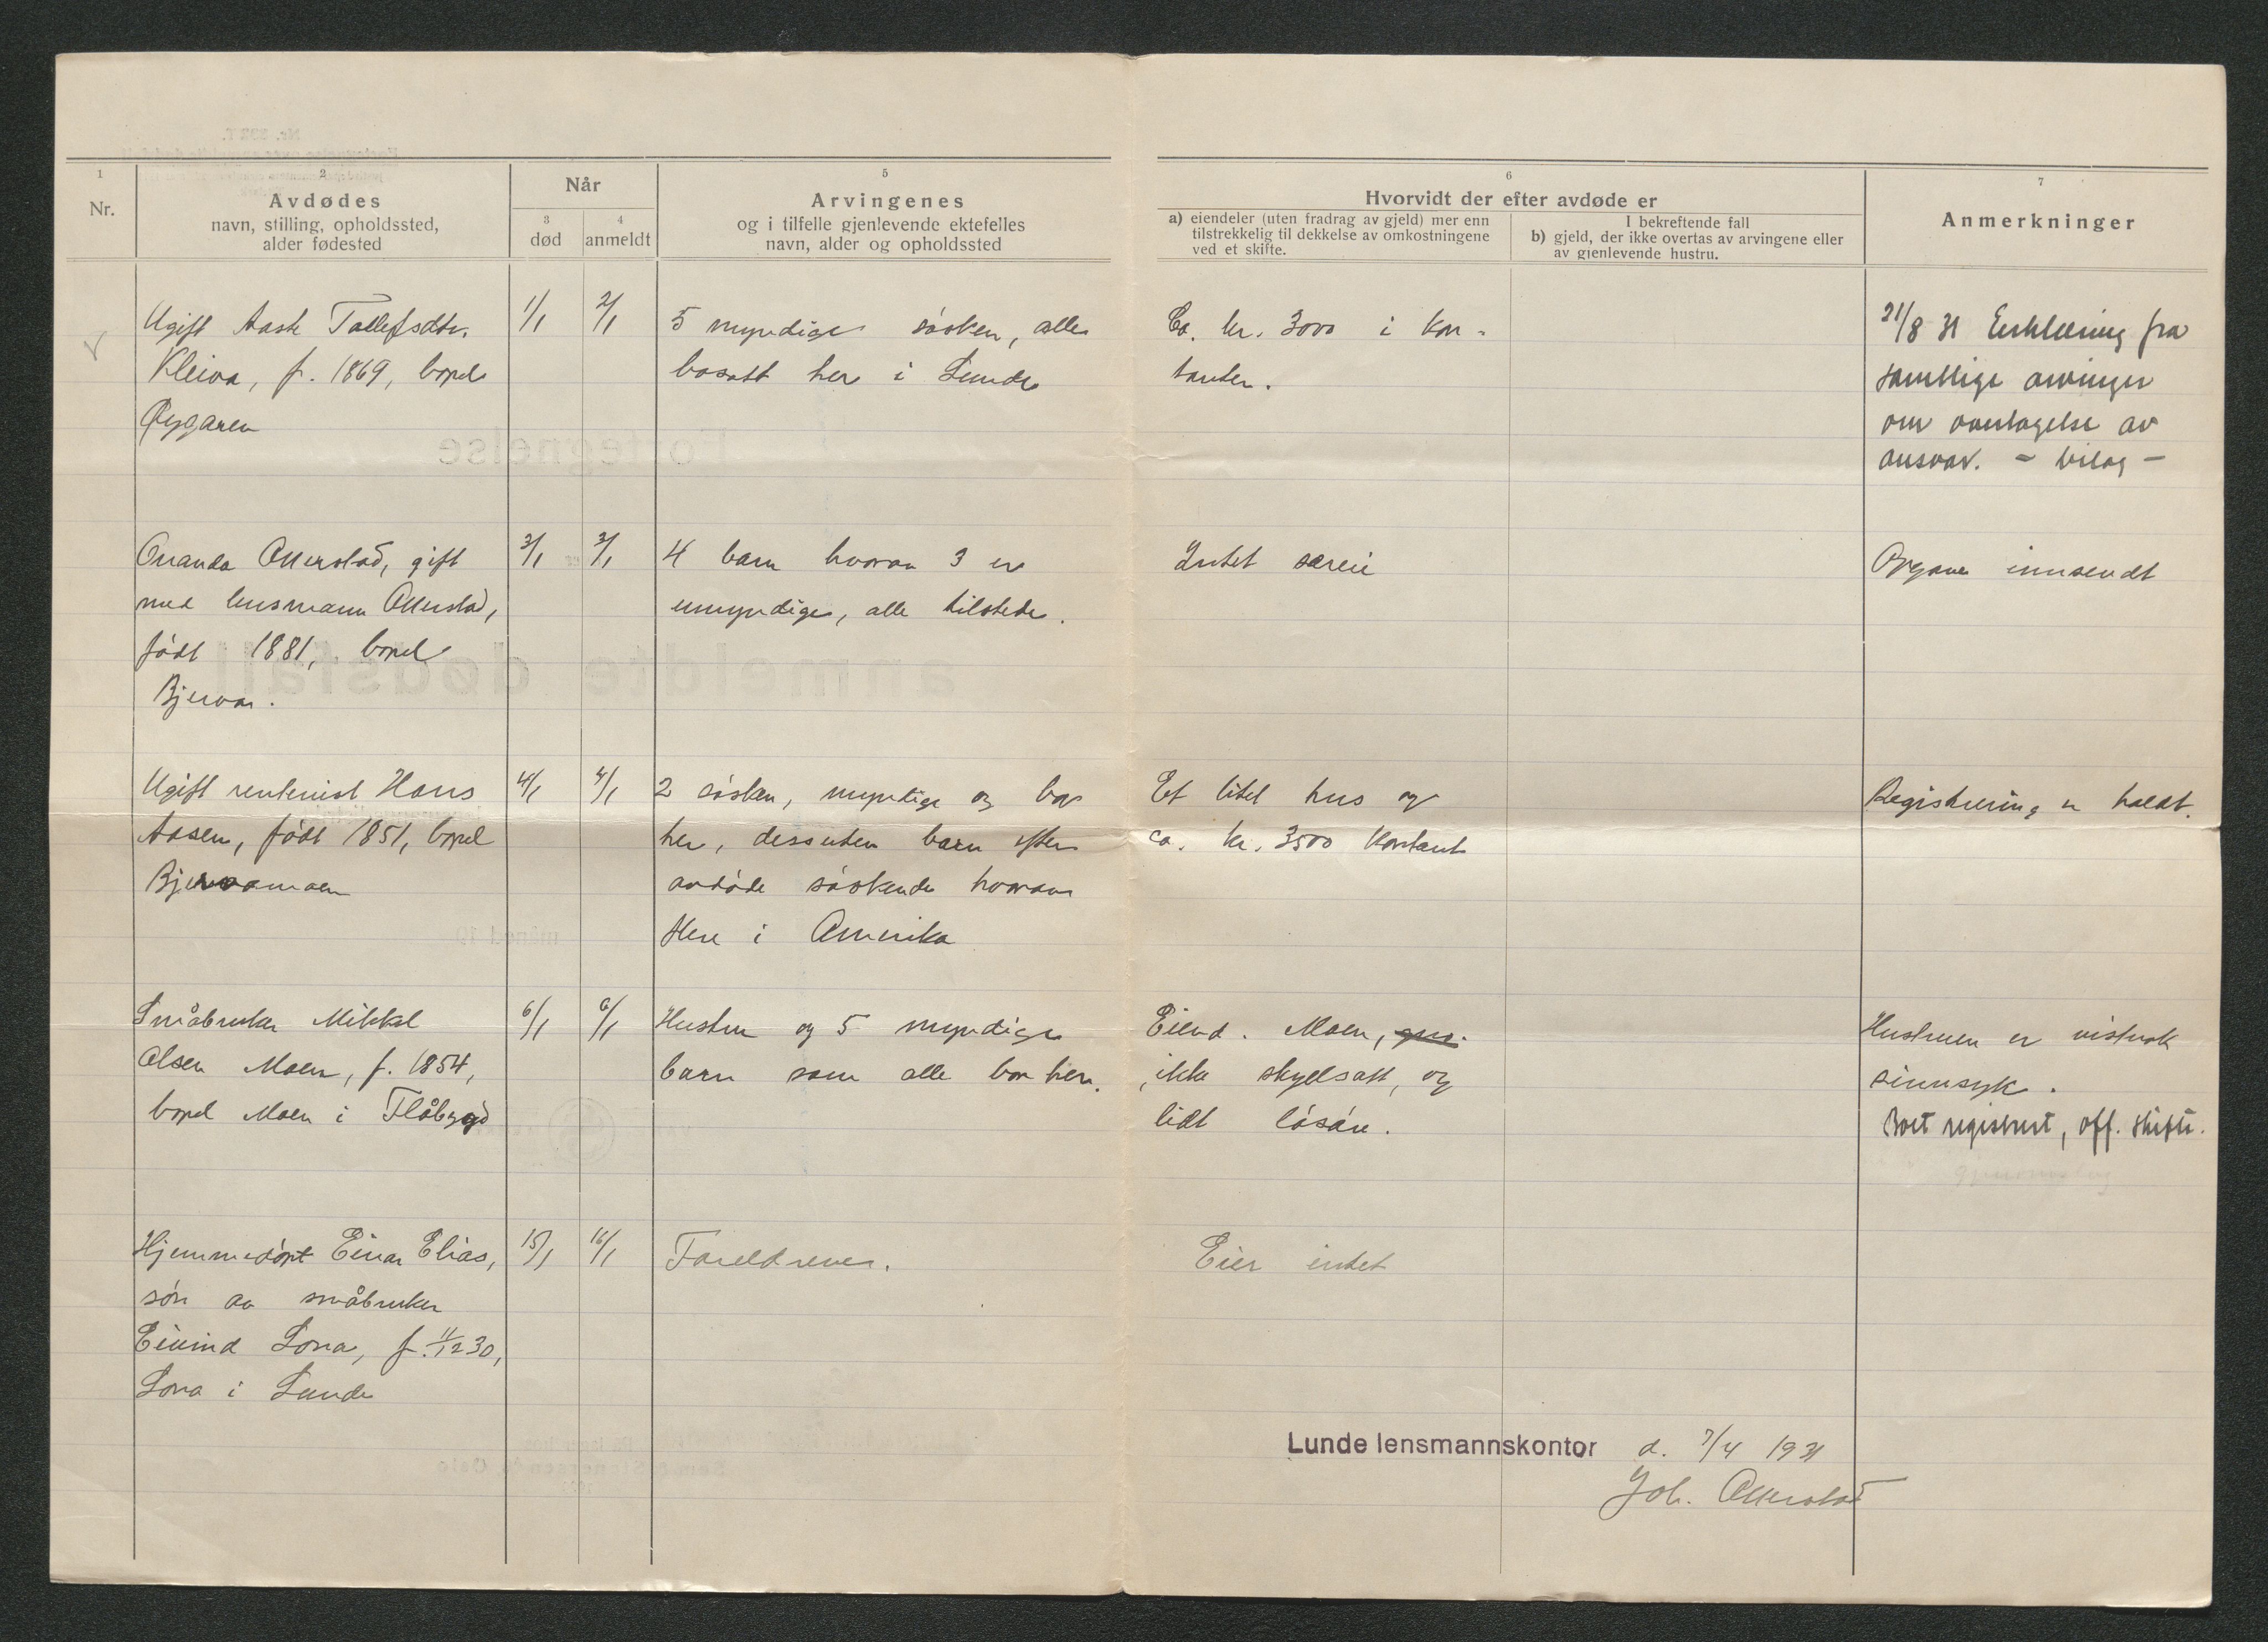 1
Nr.
2
Avdødes
navn, stilling, opholdssted,
alder fødested
Når
3
død
4
anmeldt
5
Arvingenes
og i tilfelle gjenlevende ektefelles
navn, alder og opholdssted
6
Hvorvidt der efter avdøde er
a) eiendeler (uten fradrag av gjeld) mer enn
tilstrekkelig til dekkelse av omkostningene
ved et skifte.
I bekreftende fall
b) gjeld, der ikke overtas av arvingene eller
av gjenlevende hustru.
7
Anmerkninger
Ugift Aaste Tollefsdtr.
Kleiva, f. 1869, bopel
Øygaren
1/1
2/1
5 myndige søsken, alle
bosatt her i Lunde
Ca. kr. 3000 i kon-
tanter.
21/8 31 Erklæring fra
samtlige arvinger
om overtagelse av
ansvar. - bilag -
Amanda Ollerstad, gift
med lensmann Ollerstad,
født 1881, bopel
Bjerva.
3/1
3/1
4 barn hvorav 3 er
umyndige, alle tilstede.
Intet særeie
Opgave innsendt
Ugift rentenist Hans
Aasen, født 1851, bopel
Bjervamoen
4/1
4/1
2 søsken, myndige og bor
her, dessuten barn efter
avdøde søskende hvorav
flere i Amerika
Et litet hus og
ca. kr. 3500 kontant
Registrering er holdt.
Småbruker Mikkel
Olsen Moen, f. 1854,
bopel Moen i Flåbygd
6/1
6/1
Hustru og 5 myndige
barn som alle bor her.
Eiend. Moen,
ikke skyldsatt, og
lidt løsøre.
Hustruen er vistnok
sinnsyk.
Boet registrert, off. skifte.
Hjemmedøpt Einar Elias,
søn av småbruker
Eivind Lona, f. 11/12 30,
Lona i Lunde
15/1
16/1
Foreldrene.
Eier intet
Lunde lensmannskontor d. 7/4 1931
Joh. Ollerstad